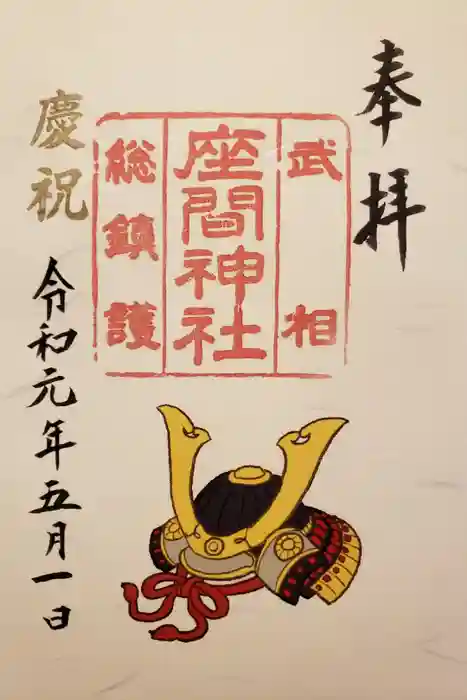 奉拝
武相
座間神社
総鎮護
慶祝
令和元年五月一日